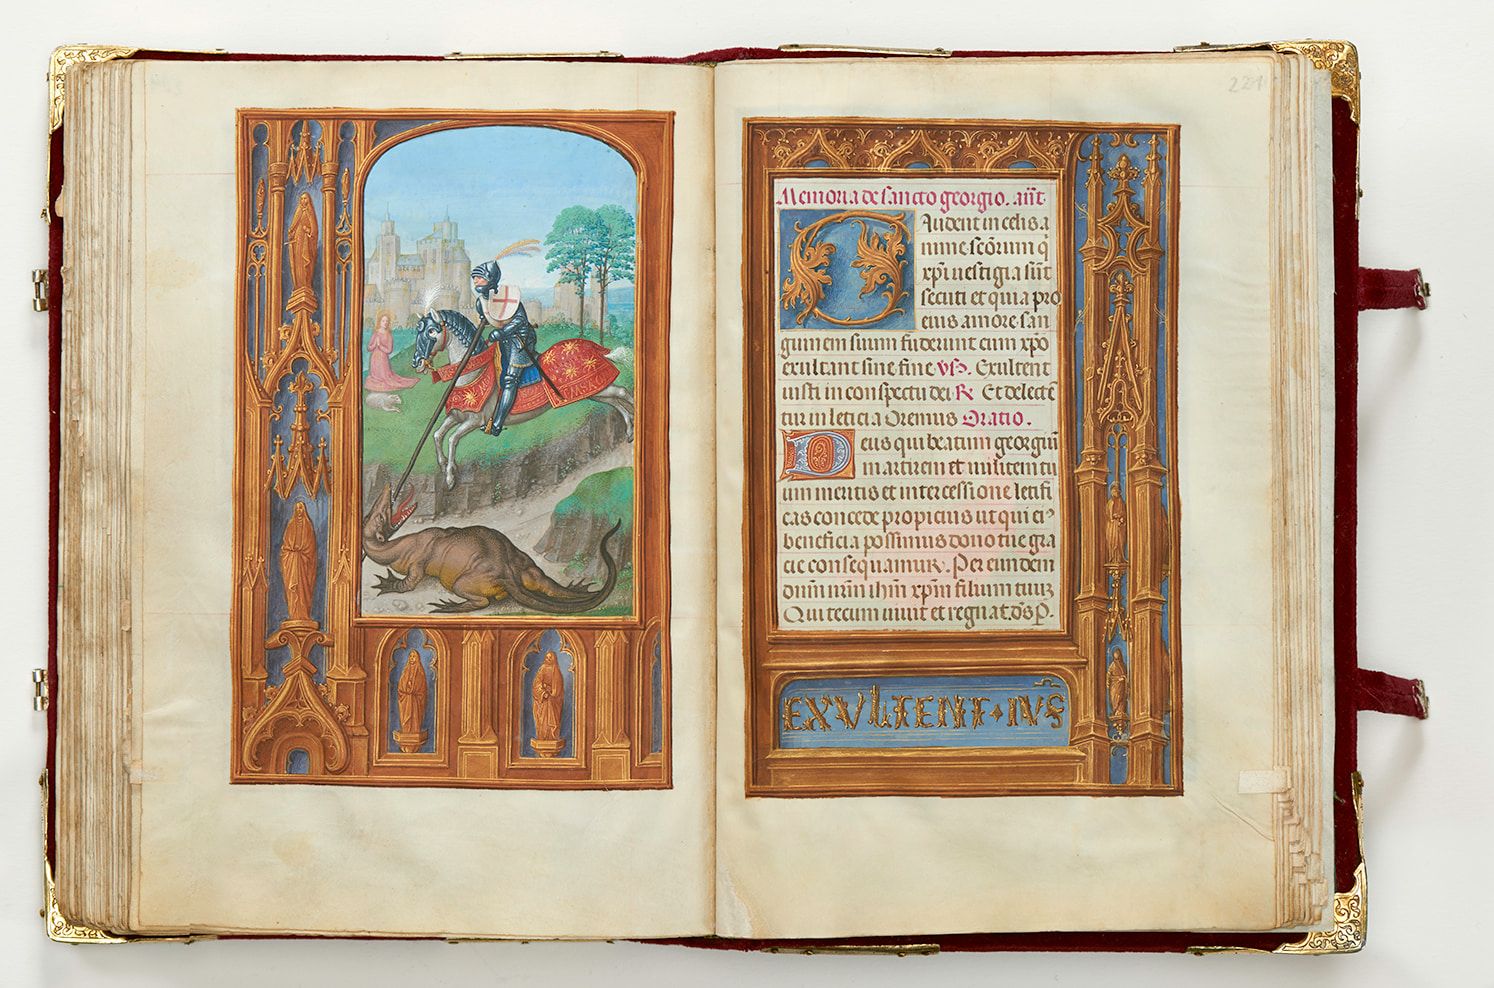 221
Memoria de sancto georgio. añt.
GAudent in celis a
nime scõrum q̃
xp̃i uestigia sũt
secuti et quia pro
eius amore san
guinem suum fuderunt cum xp̃o
exultant sine fine Vs. Exultent
iusti in conspectu dei R Et delectẽ
tur in leticia Oremus Oratio.
Deus qui beatum georgiũ
martirem et militem tu
um meritis et intercessione letifi
cas concede propicius ut qui eiꝰ
beneficia possimus dono tue gra
cie consequamur. Per eundem
dom̃ nr̃m ihm̃ xp̃m filium tuuz
Qui tecum uiuit et regnat. ds̃ P.
EXVLTENT · IVS̃